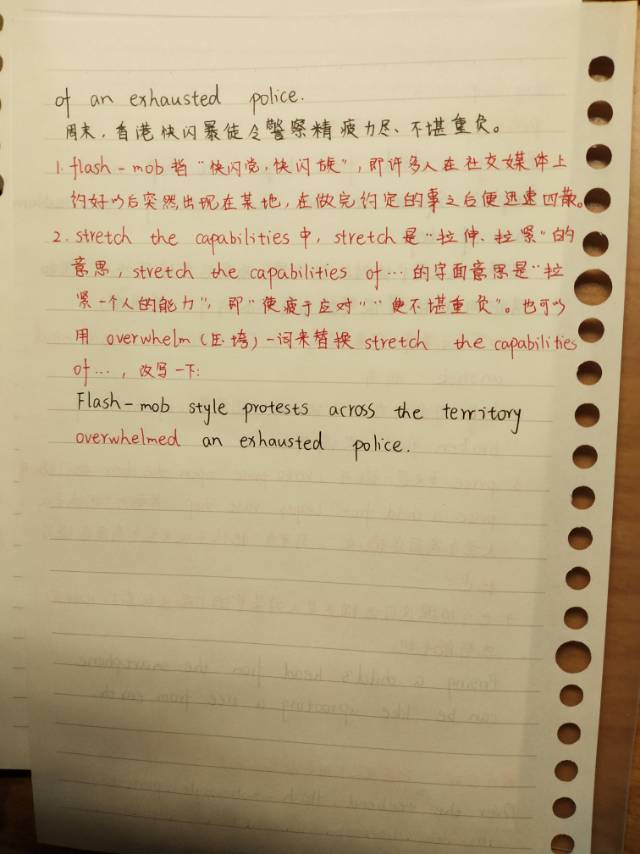 of an exhausted police.
周末，香港快闪暴徒令警察精疲力尽、不堪重负。
1. flash-mob 指“快闪党，快闪族”，即许多人在社交媒体上
约好以后突然出现在某地，在做完约定的事之后便迅速四散。
2. stretch the capabilities 中，stretch 是“拉伸、拉紧”的
意思，stretch the capabilities of … 的字面意思是“拉
紧一个人的能力”，即“使疲于应对”“使不堪重负”。也可以
用 overwhelm（压垮）一词来替换 stretch the capabilities
of …，改写一下：
Flash-mob style protests across the territory
overwhelmed an exhausted police.